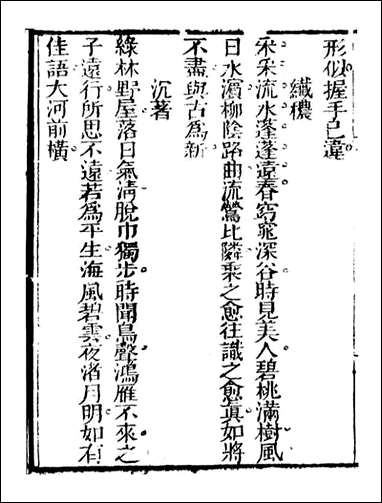 形似握手已違
纖穠
采采流水蓬蓬遠春窈窕深谷時見美人碧桃滿樹風
日水濱柳陰路曲流鶯比隣乘之愈往識之愈真如將
不盡與古爲新
沉著
綠林野屋落日氣清脫巾獨步時聞鳥聲鴻雁不來之
子遠行所思不遠若爲平生海風碧雲夜渚月明如有
佳語大河前橫